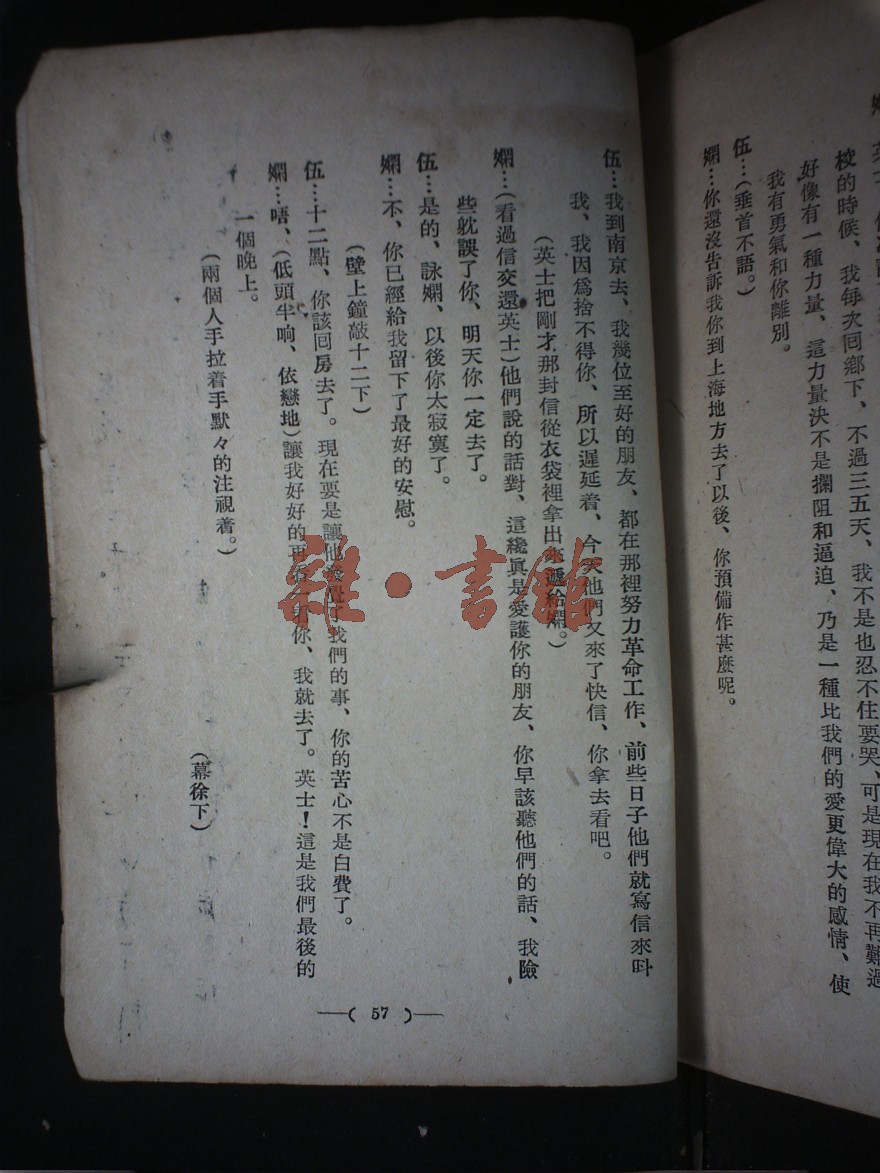 校的時候、我每次囘鄉下、不過三五天、我不是也忍不住要哭、可是現在我不再難過
好像有一種力量、這力量決不是攔阻和逼迫、乃是一種比我們的愛更偉大的感情、使
我有勇氣和你離別。
伍…(垂首不語。)
嫻…你還沒告訴我你到上海地方去了以後、你預備作甚麼呢。
伍…我到南京去、我幾位至好的朋友、都在那裡努力革命工作、前些日子他們就寫信來叫
我、我因爲捨不得你、所以遲延着、今天他們又來了快信、你拿去看吧。
(英士把剛才那封信從衣袋裡拿出來遞給嫻。)
嫻…(看過信交還英士)他們說的話對、這纔眞是愛護你的朋友、你早該聽他們的話、我險
些躭誤了你、明天你一定去了。
伍…是的、詠嫻、以後你太寂寞了。
嫻…不、你已經給我留下了最好的安慰。
(壁上鐘敲十二下)
伍…十二點、你該囘房去了。現在要是讓他發覺了我們的事、你的苦心不是白費了。
嫻…唔、(低頭半响、依戀地)讓我好好的再看一看你、我就去了。英士！這是我們最後的
一個晚上。
(兩個人手拉着手默々的注視着。)
(幕徐下)
—( 57 )—
雜·書館